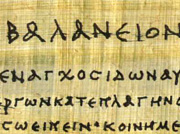 ΒΑΛΑΝΕΙΟΝ
ΕΝΑΓΧΟΣΙΔΩΝΑΥ
ΕΡΓΩΝΚΑΤΕΠΛΑΓΗΝΟ
ΣΩΕΙΚΕΙΝ·ΚΟΙΝΗΜΕ